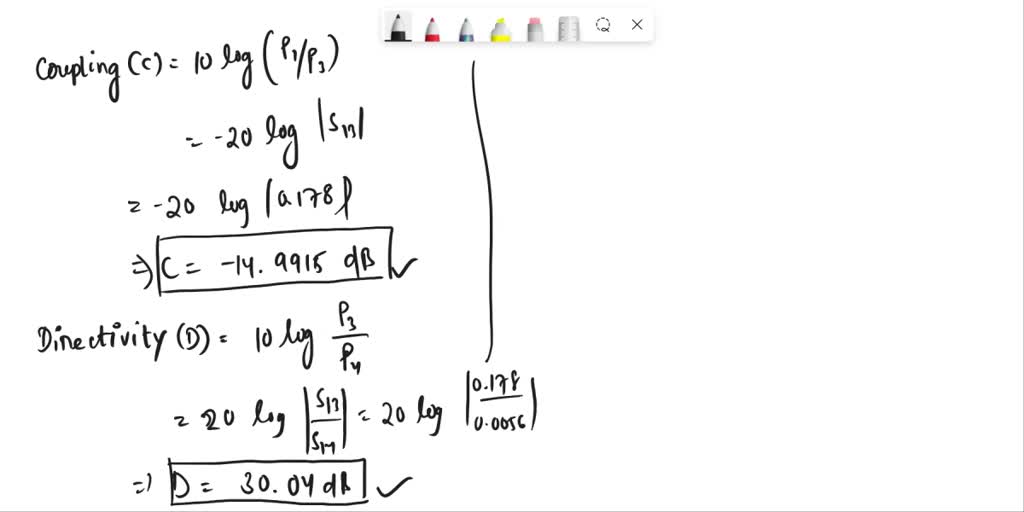 Coupling (C) = 10 log (P1/P3)
= -20 log |S13|
= -20 log |0.178|
=> C = -14.9915 dB ✓
Directivity (D) = 10 log P3/P4
= 20 log |S13/S14| = 20 log |0.178/0.0056|
=> D = 30.04 dB ✓